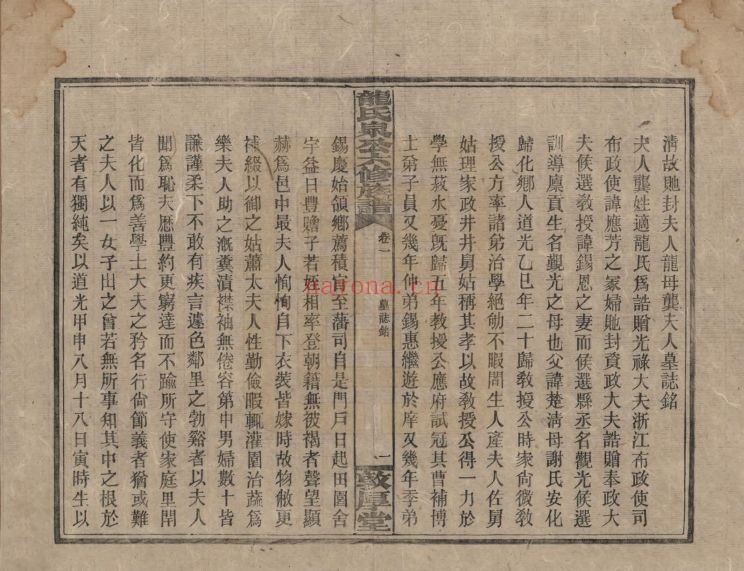 清故貤封夫人龍母龔夫人墓誌銘
夫人龔姓適龍氏爲誥贈光祿大夫浙江布政使司
布政使諱應芳之冢婦貤封資政大夫誥贈奉政大
夫候選教授諱錫恩之妻而候選縣丞名觀光候選
訓導廩貢生名觀光之母也父諱楚淸母謝氏安化
歸化鄉人道光乙巳年二十歸敎授公時家尙微敎
授公方率諸弟治學絕劬不暇問生人產夫人佐舅
姑理家政井井舅姑稱其孝以故敎授公得一力於
學無菽水憂旣歸五年敎授公應府試冠其曹補博
士弟子員又幾年仲弟錫惠繼遊於庠又幾年季弟
龍氏泉公六修族譜
卷一
墓誌銘
一
敦厚堂
錫慶始領鄕薦積官至藩司自是門戶日起田園舍
宇益日豐贍子若姪相率登朝籍無被褐者聲望顯
赫爲邑中最夫人恂恂自下衣裝皆嫁時故物敝更
補綴以御之姑蕭太夫人性勤儉暇輒灌園治蔬爲
樂夫人助之漑糞漬襟袖無倦容第中男婦數十皆
謙謹柔下不敢有疾言遽色鄰里之勃谿者以夫人
聞爲恥夫歷豐約更窮達而不踰所守使家庭里閈
皆化而爲善學士大夫之矜名行尙節義者猶或難
之夫人以一女子出之曾若無所事知其中之根於
天者有獨純矣以道光甲申八月十八日寅時生以